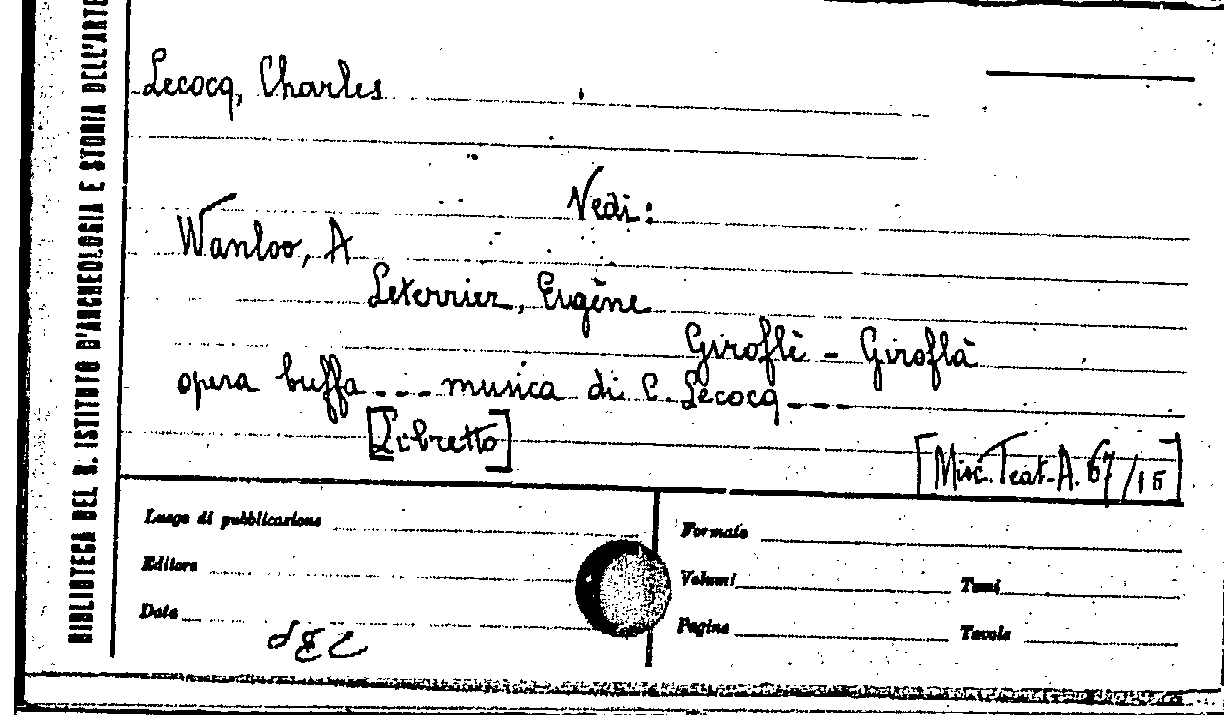 BIBLIOTECA DEL R. ISTITUTO D'ARCHEOLOGIA E STORIA DELL'ARTE
Lecocq, Charles
Vedi:
Wanloo, A
Leterrier, Eugène
Giroflè - Giroflà
opera buffa --- musica di C. Lecocq ---
[Libretto]
[Misc. Teat. A. 67/15]
Luogo di pubblicazione
Formato
Editore
Volumi
Tomi
Data
Pagine
Tavole